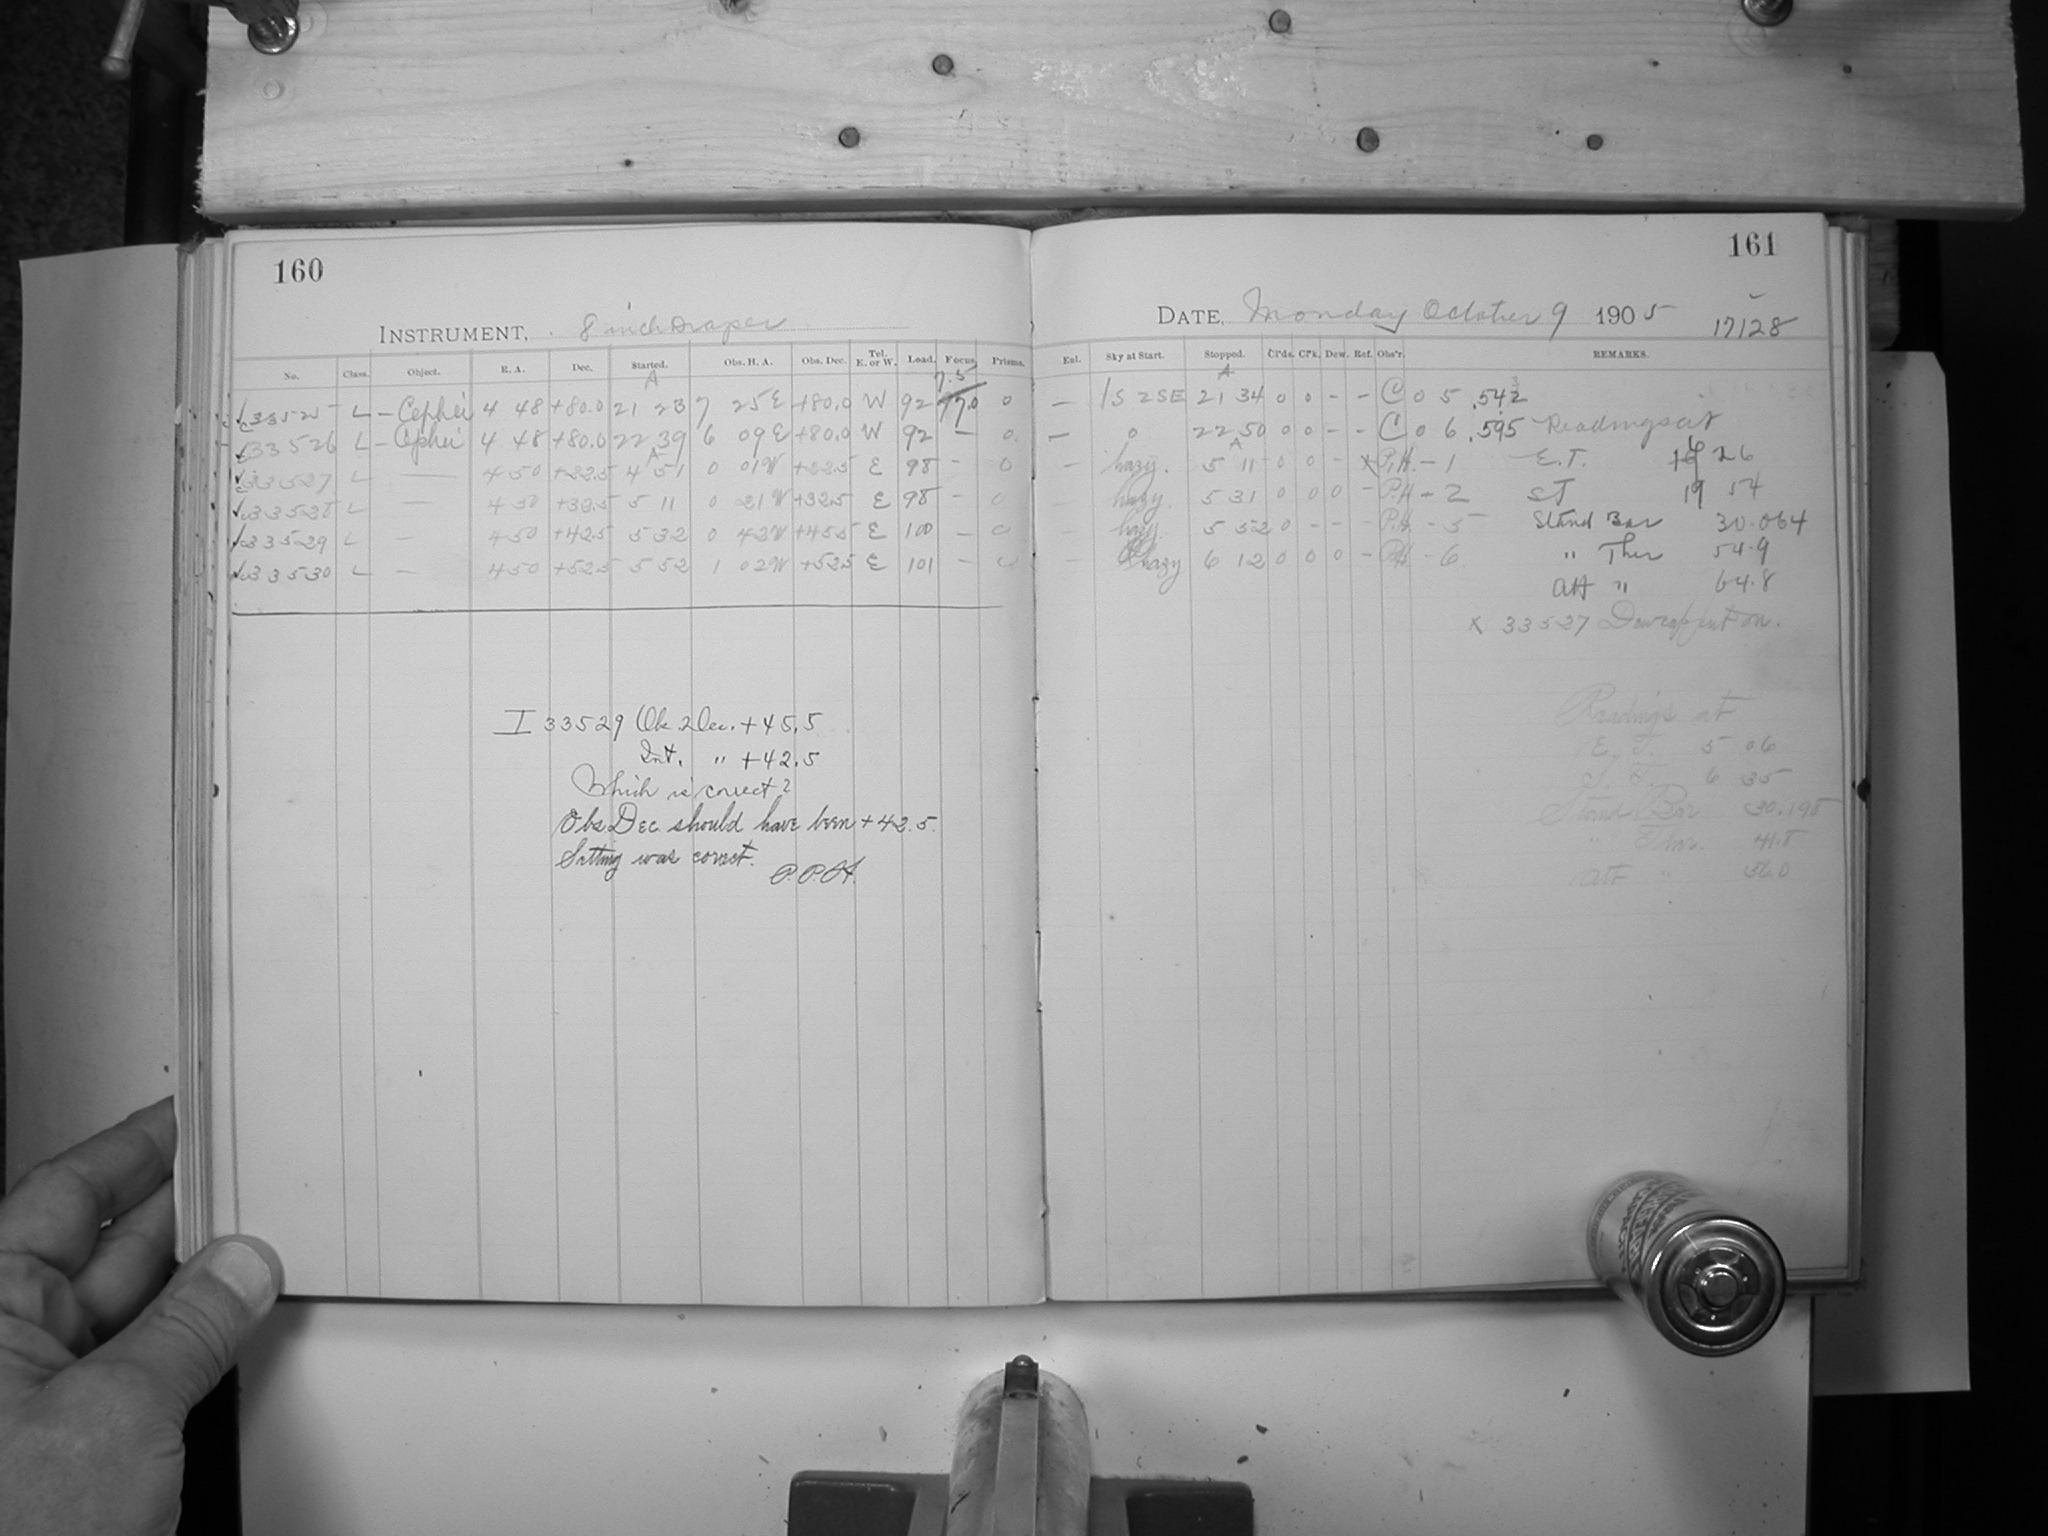 160
INSTRUMENT, 8 inch Draper
No. Class. Object. R. A. Dec. Started. Obs. H. A. Obs. Dec. Tel. E. or W. Load. Focus. Prisms.
A 7.5
33525 L - Cephei 4 48 +80.0 21 23 7 25E +80.0 W 92 77.0 0
33526 L - Cephei 4 48 +80.0 22 39 6 09E +80.0 W 92 - 0
A
33527 L — 4 50 +22.5 4 51 0 01W +22.5 E 98 - 0
33528 L — 4 50 +32.5 5 11 0 21W +32.5 E 98 - 0
33529 L — 4 50 +42.5 5 32 0 43W +45.5 E 100 - 0
33530 L — 4 50 +52.5 5 52 1 02W +52.5 E 101 - 0
I 33529 Obs. Dec. +45.5
Int. " +42.5
Which is correct?
Obs Dec should have been +42.5.
Setting was correct.
P.P.H.
161
DATE, Monday October 9 1905
17128
Enl. Sky at Start. Stopped. Cl'ds. Cl'k. Dew. Ref. Obs'r. REMARKS.
A
— 1S 2SE 21 34 0 0 - - C 0 5 .542
— 0 22 50 0 0 - - C 0 6 .595 Readings at
A
— hazy. 5 11 0 0 - x P.H. - 1 E.T. 6 26
— hazy. 5 31 0 0 0 - P.H - 2 ST 19 54
— hazy. 5 52 0 - - - P.H. - 5 Stand Bar 30.064
— hazy 6 12 0 0 0 - P.H - 6. " Ther 54.9
Att " 64.8
x 33527 Dewcap put on.
Readings at
E. T. 5 06
S. T. 6 35
Stand Bar 30.198
" Ther. 41.8
Att " 56.0